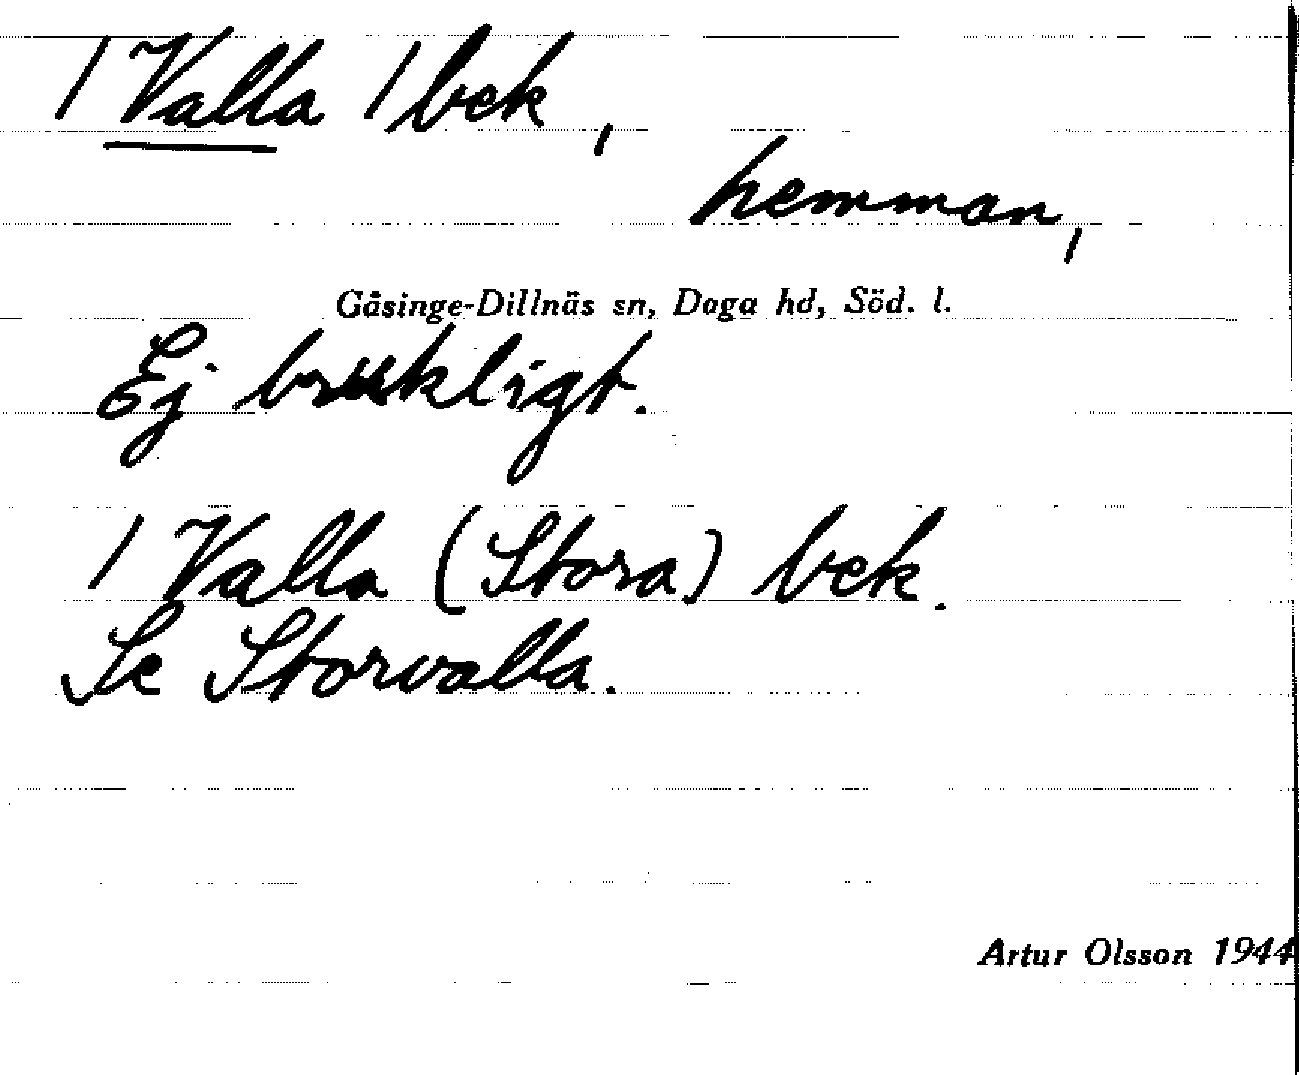 / Valla / bek,
hemman,
Gåsinge-Dillnäs sn, Daga hd, Söd. l.
Ej brukligt.
/ Valla (Stora) bek.
Se Storvalla.
Artur Olsson 1944